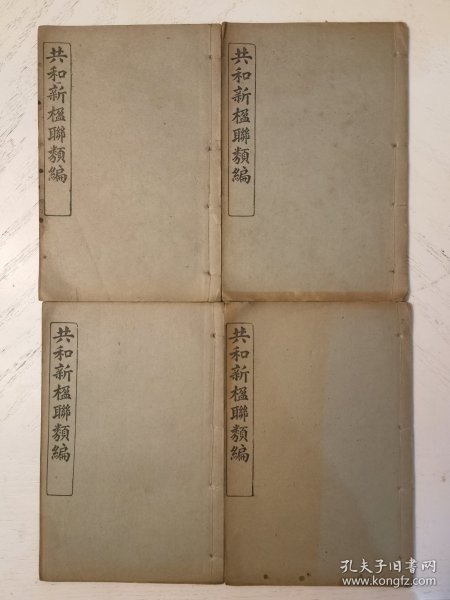 共和新楹聯類編
共和新楹聯類編
共和新楹聯類編
共和新楹聯類編
孔夫子旧书网
www.kongfz.com